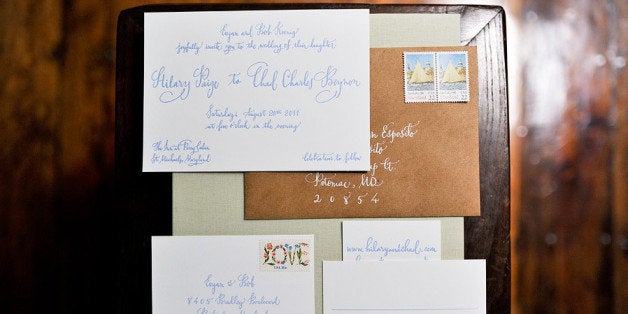 Logan and Bob Koenig
joyfully invite you to the wedding of their daughter
Hilary Paige to Chad Charles Beynon
Saturday, August 20th 2011
at five o'clock in the evening
The Inn at Perry Cabin
St. Michaels, Maryland
Celebration to follow
Esposito
Ct.
Potomac, MD
20854
LOVE
Logan & Bob
8405 Bradley Boulevard
www.hilaryandchad.com